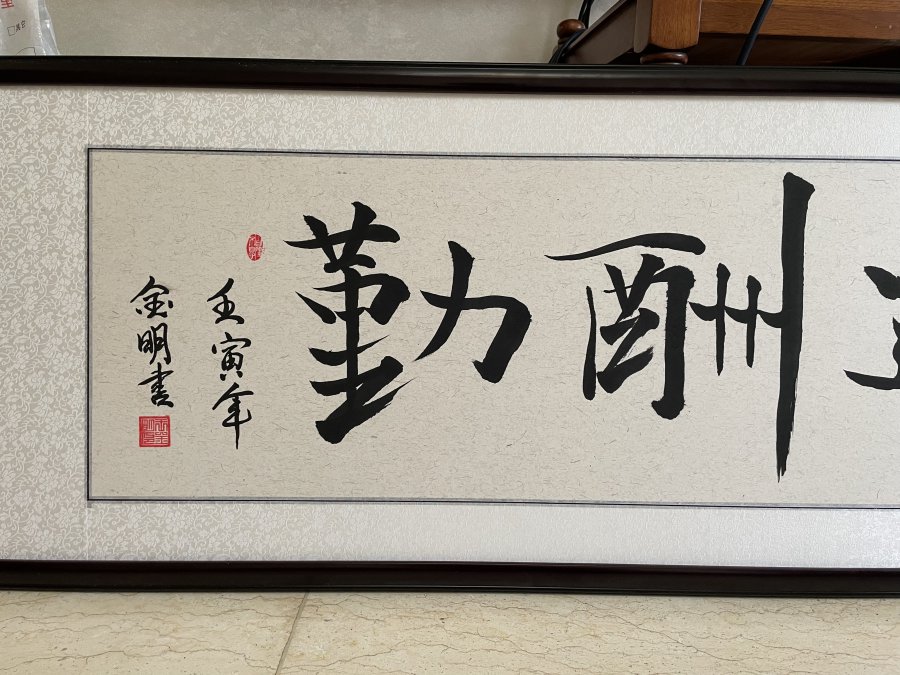 酬勤
壬寅年
金明書